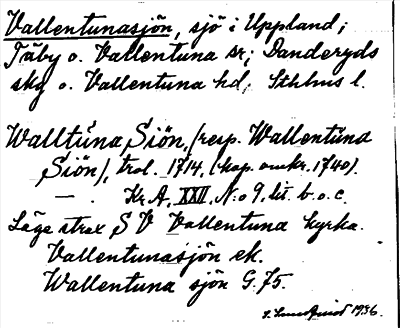 Vallentunasjön, sjö i Uppland;
Täby o. Vallentuna sr; Danderyds
skg o. Vallentuna hd; Sthlms l.
Walltuna Siön, (resp. Wallentuna
Siön), trol. 1714, (kop. omkr. 1740).
— . Kr. A, XXII, N:o 9, lit. b. o. c.
Läge strax SV Vallentuna kyrka.
Vallentunasjön ek.
Wallentuna sjön G. 75.
1936.